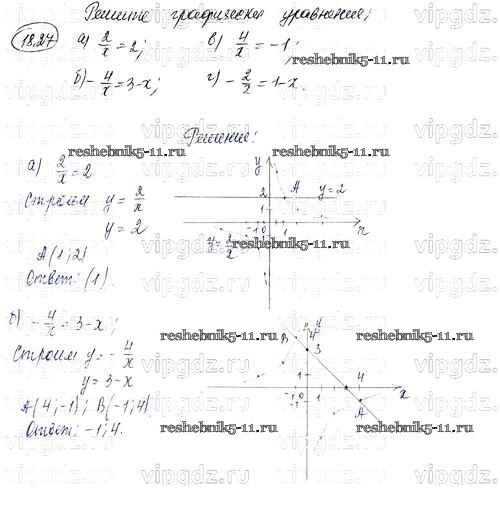 Решите графически уравнения:
18.27 а) 2/x = 2; в) 4/x = -1;
reshebnik5-11.ru
б) - 4/x = 3-x; г) - 2/x = 1-x.
Решение:
reshebnik5-11.ru
reshebnik5-11.ru
а) 2/x = 2
Строим y = 2/x
y = 2
y
2
A
y=2
1
-1 0 1
-1
x
y = 2/x
A(1; 2)
Ответ: (1).
reshebnik5-11.ru
reshebnik5-11.ru
б) - 4/x = 3-x;
reshebnik5-11.ru
reshebnik5-11.ru
Строим y = - 4/x
y = 3-x
A(4; -1); B(-1; 4)
Ответ: -1; 4.
B
4
y
3
1
-1 0 1
-1
4
A
x
reshebnik5-11.ru
reshebnik5-11.ru
vipgdz.ru